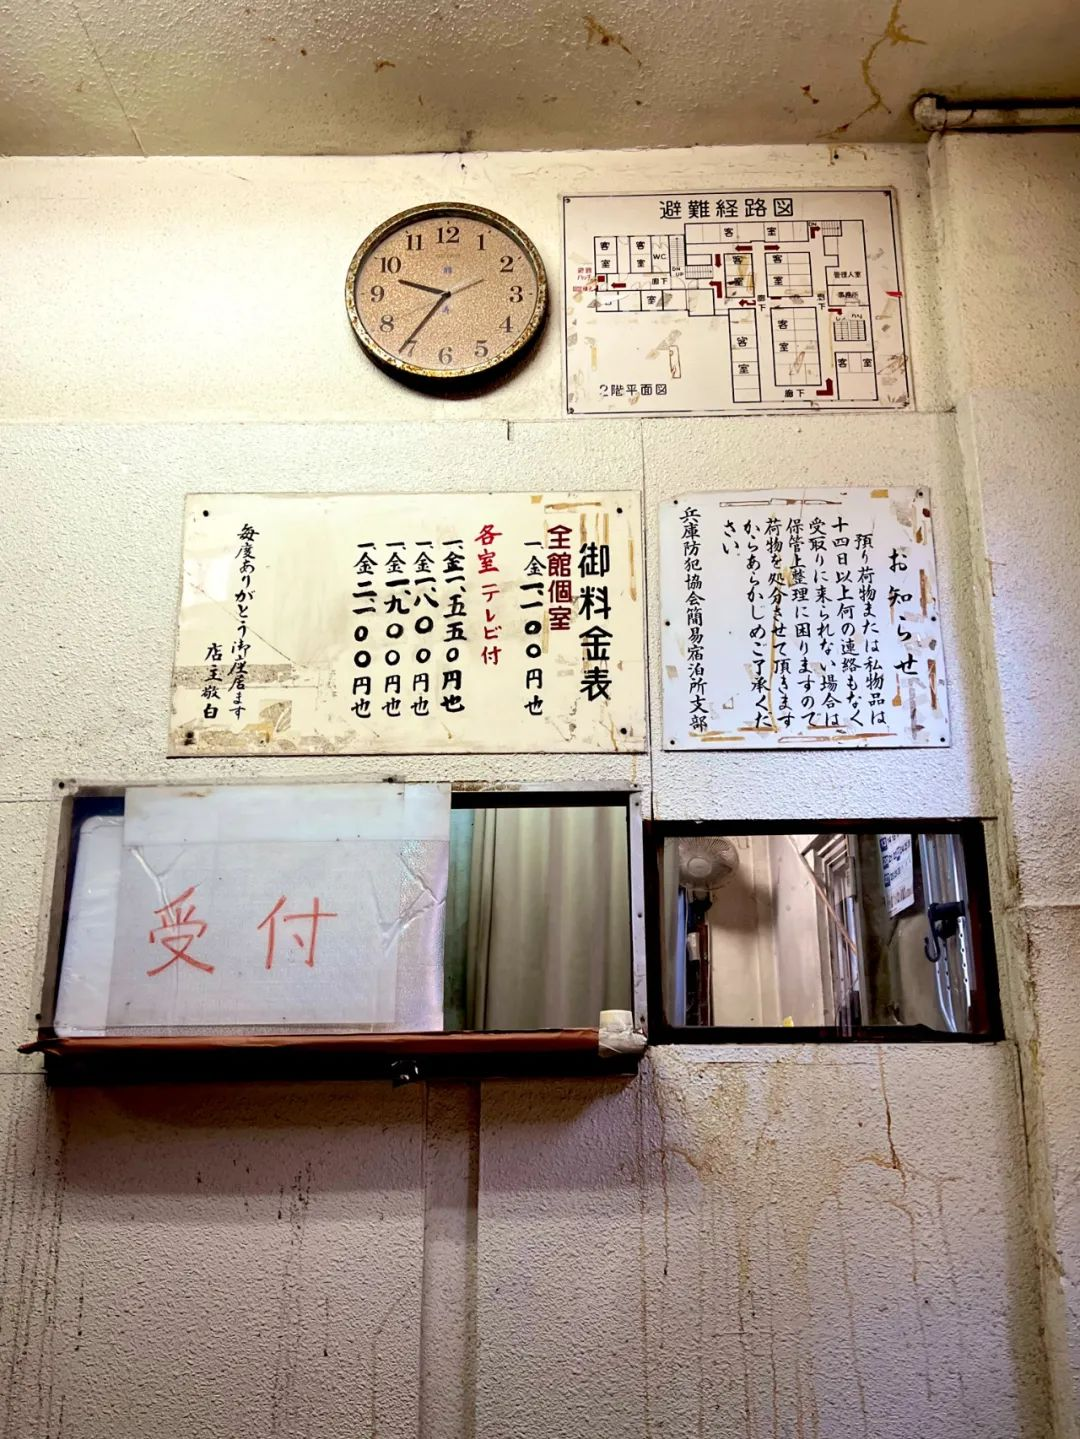 12
1
2
3
4
5
6
7
8
9
10
11
避難経路図
客室
客室
WC
DN
UP
客室
DN
客室
客室
管理人室
事務所
避難
廊下
室
廊下
廊下
客室
客室
客室
廊下
2階平面図
御料金表
全館個室
一、金一、一〇〇円也
各室テレビ付
一、金一、五五〇円也
一、金一、八〇〇円也
一、金一、九〇〇円也
一、金二、一〇〇円也
毎度ありがとう御座居ます
店主敬白
お知らせ
預り荷物または私物品は
十四日以上何の連絡もなく
受取りに来られない場合は
保管上整理に困りますので
荷物を処分させて頂きます
からあらかじめご了承くだ
さい
兵庫防犯協会簡易宿泊所支部
受付